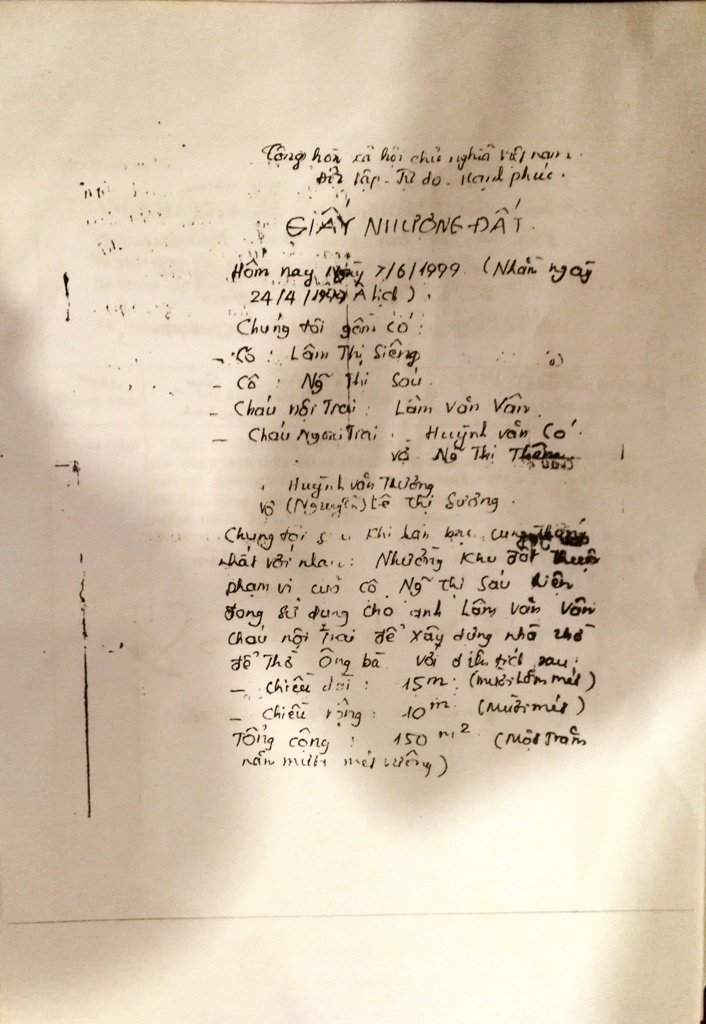 Cộng hòa xã hội chủ nghĩa việt nam
Độc lập - Tự do - Hạnh phúc.
GIẤY NHƯỜNG ĐẤT.
Hôm nay ngày 7/6/1999. (Nhằn ngày
24/4/1999 Âlịch).
Chúng tôi gồm có:
- Cô : Lâm Thị Siêng
- Cô : Ngỡ Thị Sáu.
- Cháu nội Trai : Lâm văn Vân.
- Cháu Ngoại Trai : Huỳnh văn Có
vợ Ngỡ Thị
Huỳnh văn Thưởng
vợ (Nguyễn) Lê Thị Sương.
Chúng tôi khi bàn bạc cùng
nhất với nhau: Nhường khu đất
phạm vi của cô Ngỡ Thị Sáu hiện
đang sử dụng cho anh Lâm văn Vân
cháu nội Trai để xây dựng nhà thờ
để Thờ Ông bà với diện tích sau:
- Chiều dài : 15m: (mười lăm mét)
- Chiều rộng : 10m (Mười mét)
Tổng cộng : 150 m2 (Một Trăm
năm mươi mét vuông)